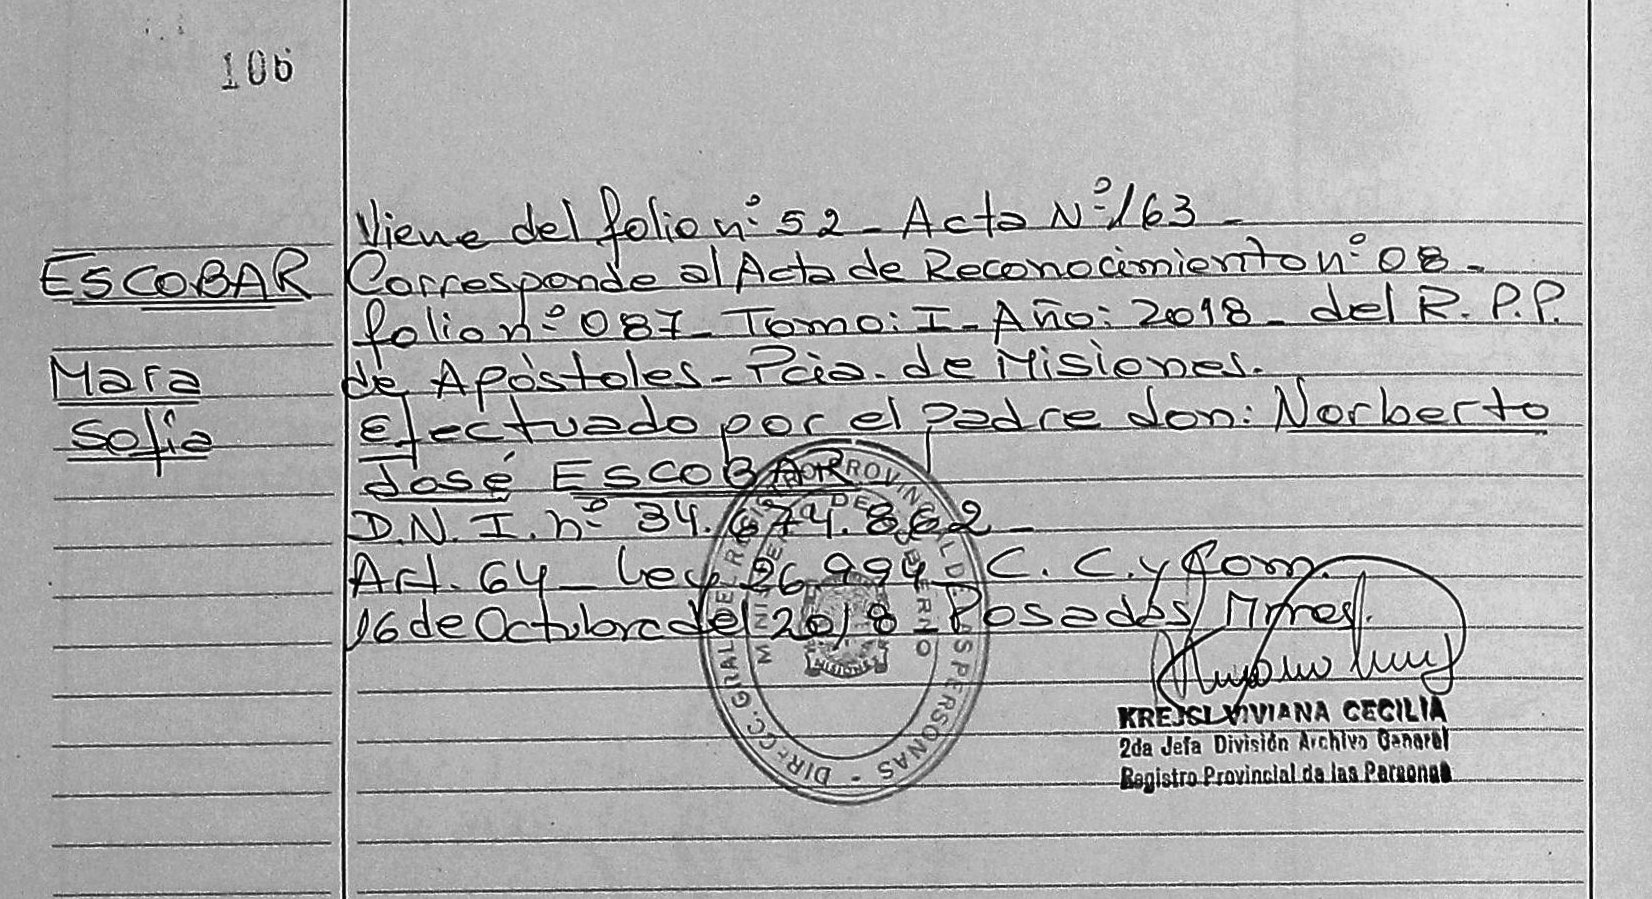 106
Viene del folio nº 52 - Acta Nº 163 -
ESCOBAR
Corresponde al Acta de Reconocimiento nº 08 -
folio nº 087 - Tomo: I - Año: 2018 - del R. P. P.
Mara
de Apóstoles - Pcia. de Misiones.
Sofia
Efectuado por el padre don: Norberto
José ESCOBAR
D. N. I. nº 34.674.862 -
Art. 64 - Ley 26.994 - C. C. y Com.
16 de Octubre del 2018 - Posadas, Mnes.
DIRECC. GRAL DEL REGISTRO PROVINCIAL DE LAS PERSONAS
MINISTERIO DE GOBIERNO
MISIONES
KREJSI VIVIANA CECILIA
2da Jefa División Archivo General
Registro Provincial de las Personas